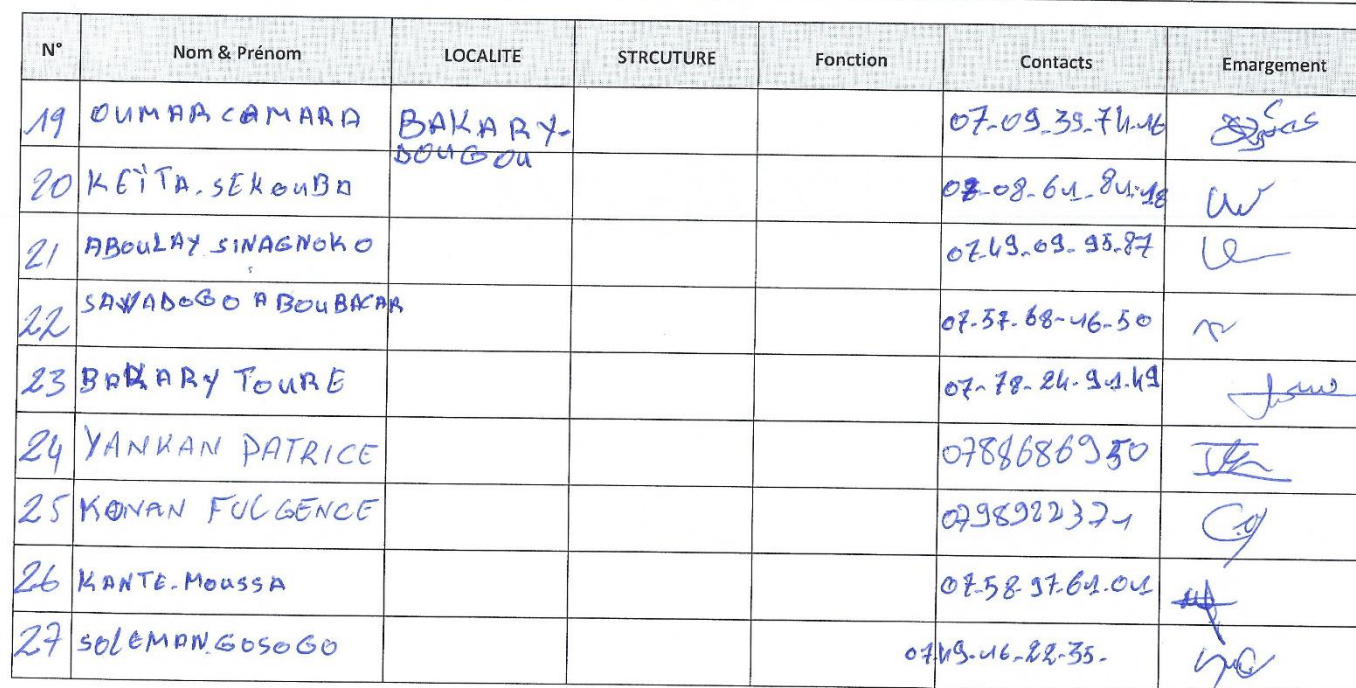 N° Nom & Prénom LOCALITE STRCUTURE Fonction Contacts Emargement
19 OUMAR CAMARA BAKARY- 07-09-39-74-16
DOUGOU
20 KEÏTA. SEKOUBA 07-08-61-81-18
21 ABOULAY SINAGNOKO 07-49-09-95-87
22 SAWADOGO ABOUBACAR 07-57-68-46-50
23 BAKARY TOURE 07-78-24-91-49
24 YANKAN PATRICE 0788686950
25 KONAN FULGENCE 0798922371
26 KANTE-MOUSSA 07-58-97-61-01
27 SOLEMAN.GOSOGO 0749-46-22-35-